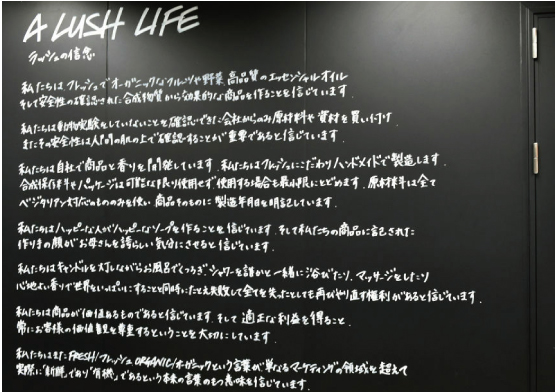 A LUSH LIFE
ラッシュの信念
私たちは、フレッシュでオーガニックなフルーツや野菜、高品質のエッセンシャルオイル
そして安全性の確認された合成物質から効果的な商品を作ることを信じています.
私たちは動物実験をしていないことを確認できた会社からのみ原材料や資材を買い付け
またその安全性は人間の肌の上で確認することが重要であると信じています.
私たちは自社で商品と香りを開発しています. 私たちはフレッシュにこだわりハンドメイドで製造します.
合成保存料やパッケージは可能な限り使用せず、使用する場合も最小限にとどめます. 原材料は全て
ベジタリアン対応のもののみを使い 商品そのものに 製造年月日を明記しています.
私たちはハッピーな人がハッピーなソープを作ることを信じています. そして私たちの商品に記された
作り手の顔がお母さんを誇らしい気分にさせると信じています.
私たちはキャンドルを灯しながらお風呂でくつろぎ、シャワーを誰かと一緒に浴びたり、マッサージをしたり
心地よい香りで世界をいっぱいにすることと同時に、たとえ失敗して全てを失ったとしても再びやり直す権利があると信じています.
私たちは商品が価値あるものであると信じています. そして 適正な利益を得ること、
常にお客様の価値観を尊重するということを大切にしています.
私たちはまたFRESH/フレッシュ ORGANIC/オーガニックという言葉が単なるマーケティングの領域を超えて
実際に「新鮮」であり「有機」であるという本来の言葉のもつ意味を信じています.